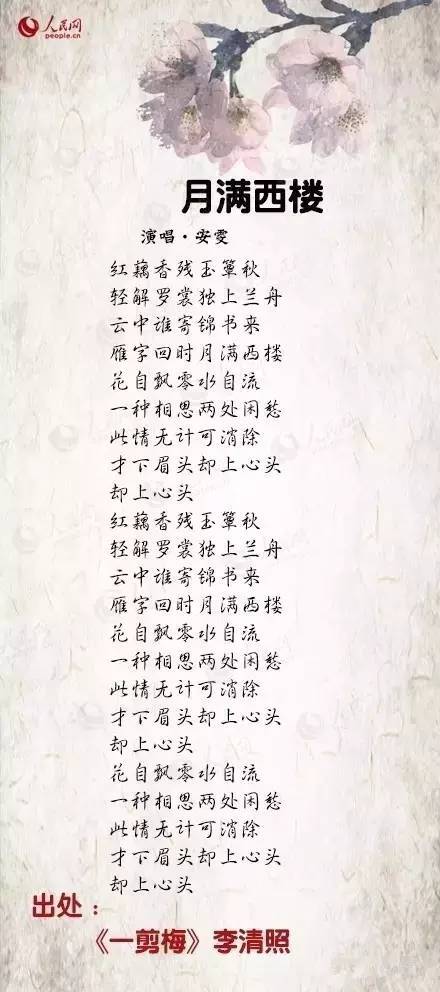 人民网
people.cn
月满西楼
演唱·安雯
红藕香残玉簟秋
轻解罗裳独上兰舟
云中谁寄锦书来
雁字回时月满西楼
花自飘零水自流
一种相思两处闲愁
此情无计可消除
才下眉头却上心头
却上心头
红藕香残玉簟秋
轻解罗裳独上兰舟
云中谁寄锦书来
雁字回时月满西楼
花自飘零水自流
一种相思两处闲愁
此情无计可消除
才下眉头却上心头
却上心头
花自飘零水自流
一种相思两处闲愁
此情无计可消除
才下眉头却上心头
却上心头
出处：
《一剪梅》李清照